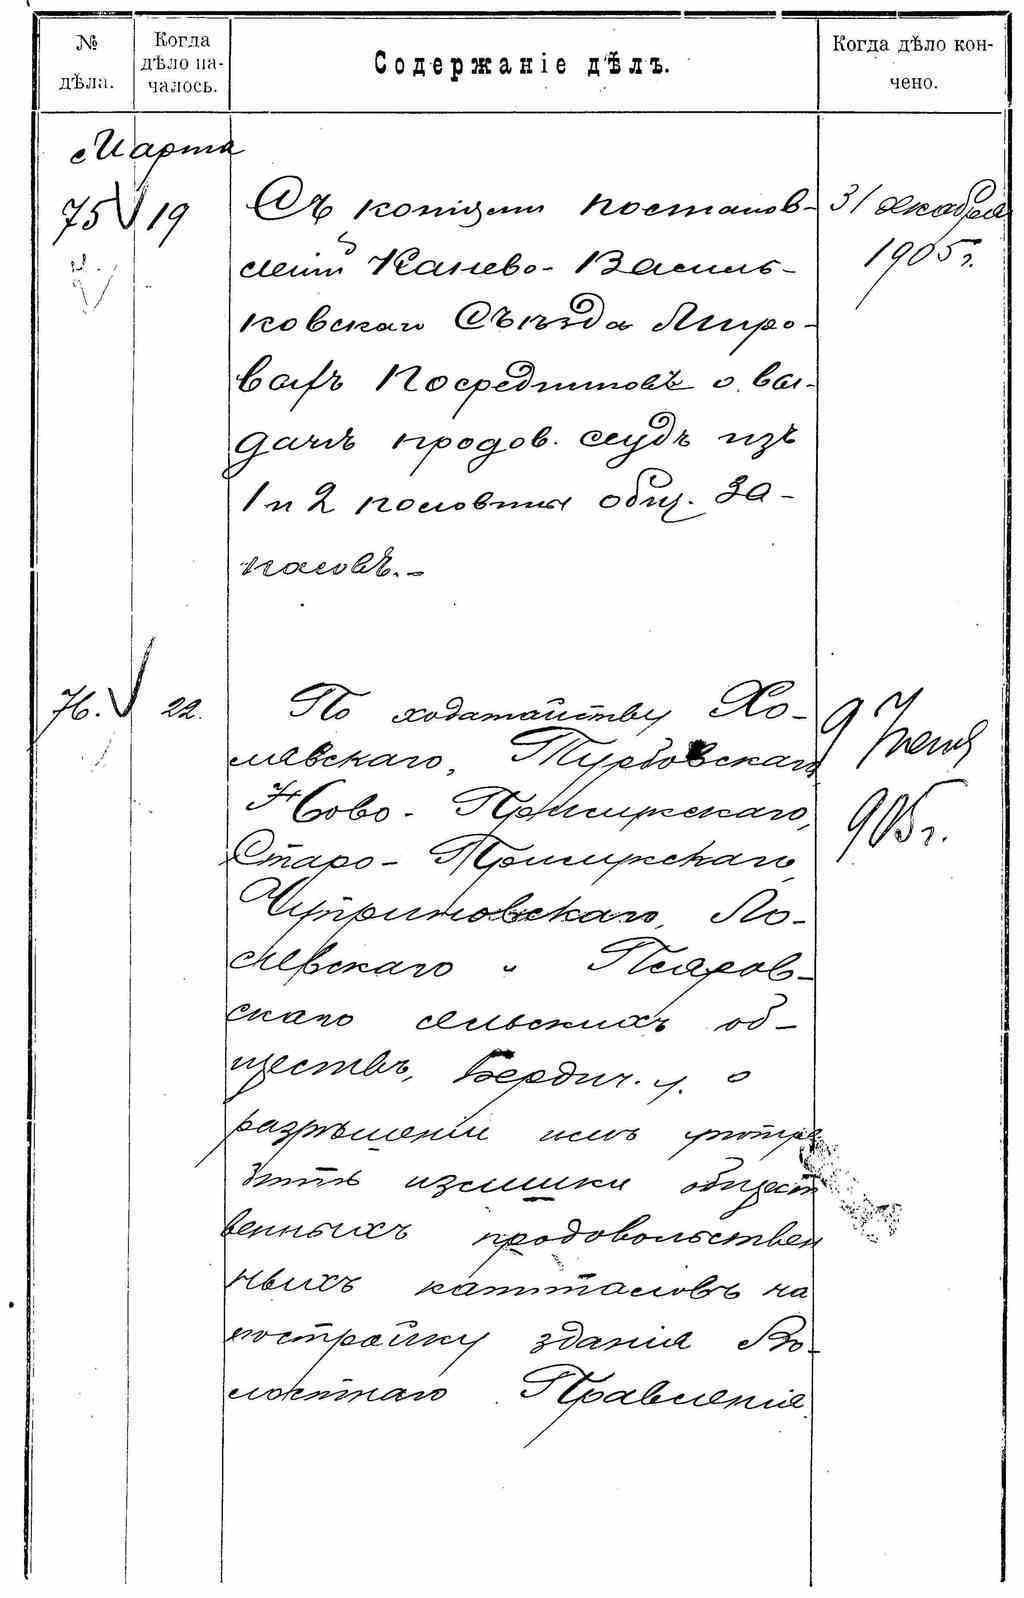 № дѣла.
Когда дѣло на-
чалось.
Содержаніе дѣлъ.
Когда дѣло кон-
чено.
Марта
75 19 Съ копіями постанов- 31 декабря
леній Канево-Василь- 1905 г.
ковскаго Съѣзда Миро-
выхъ Посредниковъ о вы-
дачѣ продов. ссудъ изъ
1 и 2 половины общ. за-
пасовъ.-
76. 22. По ходатайству Хо- 9 Іюня
левскаго, Турбовскаго 905 г.
Ново-Прилукскаго,
Старо-Прилукскаго,
Чуприновскаго, Ло-
севскаго и Псяров-
скаго сельскихъ об-
ществъ, Бердич. у. о
разрѣшеніи имъ употре
бить излишки общест
венныхъ продовольствен
ныхъ капиталовъ на
постройку зданія Во-
лостнаго Правленія